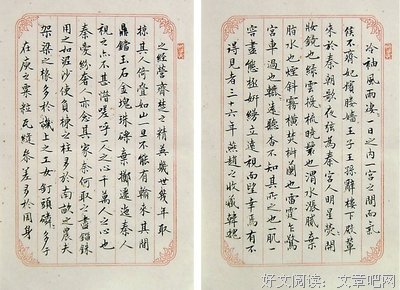 冷袖風雨凄々一日之内一宮之間而氣
候不齊妃嬪媵嬙王子王孫辭樓下殿輦
來於秦朝歌夜弦為秦宮人明星熒々開
妝鏡也綠雲擾々梳曉鬟也渭水漲膩棄
脂水也煙斜霧橫焚椒蘭也雷霆乍驚
宮車過也轆々遠聽杳不知其所之也一肌一
容盡態極妍縵立遠視而望幸焉有不
得見者三十六年燕趙之收藏韓魏
之經營齊楚之精英幾世幾年取
掠其人倚疊如山一旦不能有輸來其間
鼎鐺玉石金塊珠礫棄擲邐迤秦人
視之亦不甚惜嗟乎一人之心千萬人之心也
秦愛紛奢人亦念其家奈何取之盡錙銖
用之如泥沙使負棟之柱多於南畝之農夫
架梁之椽多於機上之工女釘頭磷々多於
在庾之粟粒瓦縫參差多於周身
好文阅读：文章吧网